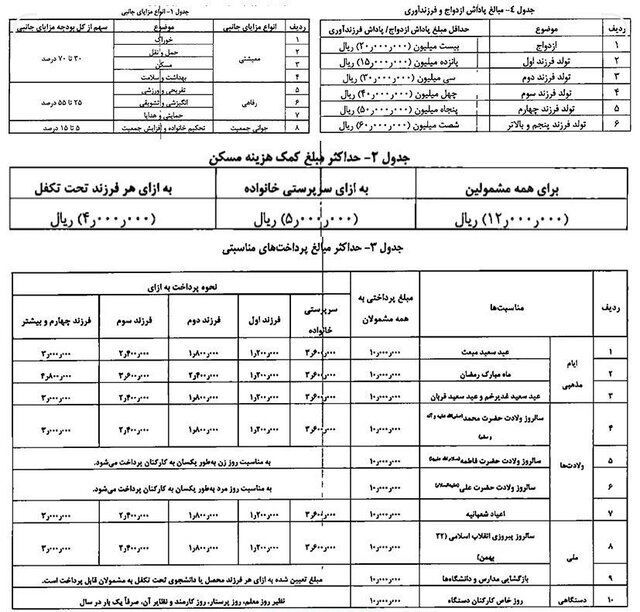 جدول ۱- انواع مزایای جانبی
ردیف موضوع انواع مزایای جانبی سهم از کل بودجه مزایای جانبی
۱ خوراک معیشتی ۳۰ تا ۷۰ درصد
۲ حمل و نقل
۳ مسکن
۴ بهداشت و سلامت
۵ تفریحی و ورزشی رفاهی ۲۵ تا ۵۵ درصد
۶ انگیزشی و تشویقی
۷ حمایتی و هدایا
۸ تحکیم خانواده و افزایش جمعیت جوانی جمعیت ۵ تا ۱۵ درصد
جدول ۴- مبالغ پاداش ازدواج و فرزندآوری
ردیف موضوع حداقل مبلغ پاداش ازدواج/ پاداش فرزندآوری
۱ ازدواج بیست میلیون (۲۰٫۰۰۰٫۰۰۰) ریال
۲ تولد فرزند اول پانزده میلیون (۱۵٫۰۰۰٫۰۰۰) ریال
۳ تولد فرزند دوم سی میلیون (۳۰٫۰۰۰٫۰۰۰) ریال
۴ تولد فرزند سوم چهل میلیون (۴۰٫۰۰۰٫۰۰۰) ریال
۵ تولد فرزند چهارم پنجاه میلیون (۵۰٫۰۰۰٫۰۰۰) ریال
۶ تولد فرزند پنجم و بالاتر شصت میلیون (۶۰٫۰۰۰٫۰۰۰) ریال
جدول ۲- حداکثر مبلغ کمک هزینه مسکن
برای همه مشمولین به ازای سرپرستی خانواده به ازای هر فرزند تحت تکفل
(۱۲٫۰۰۰٫۰۰۰) ریال (۵٫۰۰۰٫۰۰۰) ریال (۴٫۰۰۰٫۰۰۰) ریال
جدول ۳- حداکثر مبالغ پرداخت‌های مناسبتی
ردیف مناسبت‌ها مبلغ پرداختی به همه مشمولان نحوه پرداخت به ازای
سرپرستی خانواده فرزند اول فرزند دوم فرزند سوم فرزند چهارم و بیشتر
ایام مذهبی
۱ عید سعید مبعث ۱۰٫۰۰۰٫۰۰۰ ۳٫۶۰۰٫۰۰۰ ۱٫۲۰۰٫۰۰۰ ۱٫۸۰۰٫۰۰۰ ۲٫۴۰۰٫۰۰۰ ۳٫۰۰۰٫۰۰۰
۲ ماه مبارک رمضان ۱۰٫۰۰۰٫۰۰۰ ۳٫۶۰۰٫۰۰۰ ۱٫۲۰۰٫۰۰۰ ۲٫۴۰۰٫۰۰۰ ۳٫۶۰۰٫۰۰۰ ۴٫۸۰۰٫۰۰۰
۳ عید سعید غدیرخم و عید سعید قربان ۱۰٫۰۰۰٫۰۰۰ ۳٫۶۰۰٫۰۰۰ ۱٫۲۰۰٫۰۰۰ ۱٫۸۰۰٫۰۰۰ ۲٫۴۰۰٫۰۰۰ ۳٫۰۰۰٫۰۰۰
ولادت‌ها
۴ سالروز ولادت حضرت محمد ۱۰٫۰۰۰٫۰۰۰ ۳٫۶۰۰٫۰۰۰ ۱٫۲۰۰٫۰۰۰ ۱٫۸۰۰٫۰۰۰ ۲٫۴۰۰٫۰۰۰ ۳٫۰۰۰٫۰۰۰
۵ سالروز ولادت حضرت فاطمه ۱۰٫۰۰۰٫۰۰۰ به مناسبت روز زن به‌طور یکسان به کارکنان پرداخت می‌شود.
۶ سالروز ولادت حضرت علی ۱۰٫۰۰۰٫۰۰۰ به مناسبت روز مرد به‌طور یکسان به کارکنان پرداخت می‌شود.
۷ اعیاد شعبانیه ۱۰٫۰۰۰٫۰۰۰ ۳٫۶۰۰٫۰۰۰ ۱٫۲۰۰٫۰۰۰ ۱٫۸۰۰٫۰۰۰ ۲٫۴۰۰٫۰۰۰ ۳٫۰۰۰٫۰۰۰
ملی
۸ سالروز پیروزی انقلاب اسلامی (۲۲ بهمن) ۱۰٫۰۰۰٫۰۰۰ ۳٫۶۰۰٫۰۰۰ ۱٫۲۰۰٫۰۰۰ ۱٫۸۰۰٫۰۰۰ ۲٫۴۰۰٫۰۰۰ ۳٫۰۰۰٫۰۰۰
۹ بازگشایی مدارس و دانشگاه‌ها ۱۰٫۰۰۰٫۰۰۰ مبلغ تعیین شده به ازای هر فرزند محصل یا دانشجوی تحت تکفل به مشمولان قابل پرداخت است.
دستگاهی
۱۰ روز خاص کارکنان دستگاه ۱۰٫۰۰۰٫۰۰۰ نظیر روز معلم، روز پرستار، روز کارمند و نظایر آن، صرفاً یک بار در سال